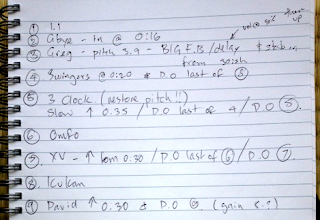 ① 1.1
② Abyo - in @ 0:16
vol @ 50%
③ Greg - pitch 3.9 - BIG F.B / delay
from 50ish
④ Swingers @ 0:20 & D.O last of ③
⑤ 3 Clock. (restore pitch!!)
Slow ↑ 0.35 / D.O last of 4 / D.O ⑤.
⑥ Omfo
⑦ XV - ↑ from 0:30 / D.O last of ⑥ / D.O ⑦.
⑧ Kukan
⑨ David ↑ 0:30 & D.O (gain